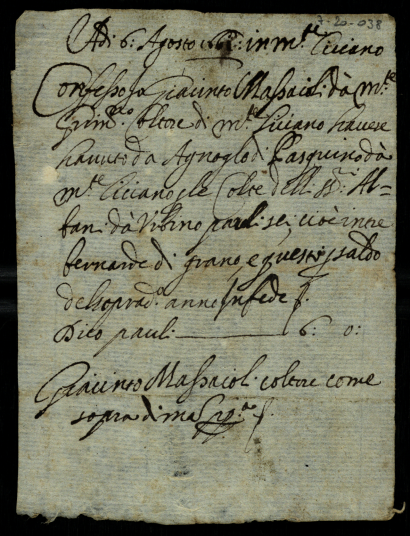 7-20-038
Adi 6: Agosto in m.te Ciciano
Confesso Io Giacinto Massaioli da m.te
Coltore di m.te Ciciano havere
havuto da Agnoglo di Pasquino da
m.te Ciciano p le Colte dell
bani da Urbino pauli sei cioè in tre
bernarde di grano e questi p saldo
del soprad.o anno In fede
Dico pauli 6: 0:
Giacinto Massaioli coltore come
sopra di ma pp.a